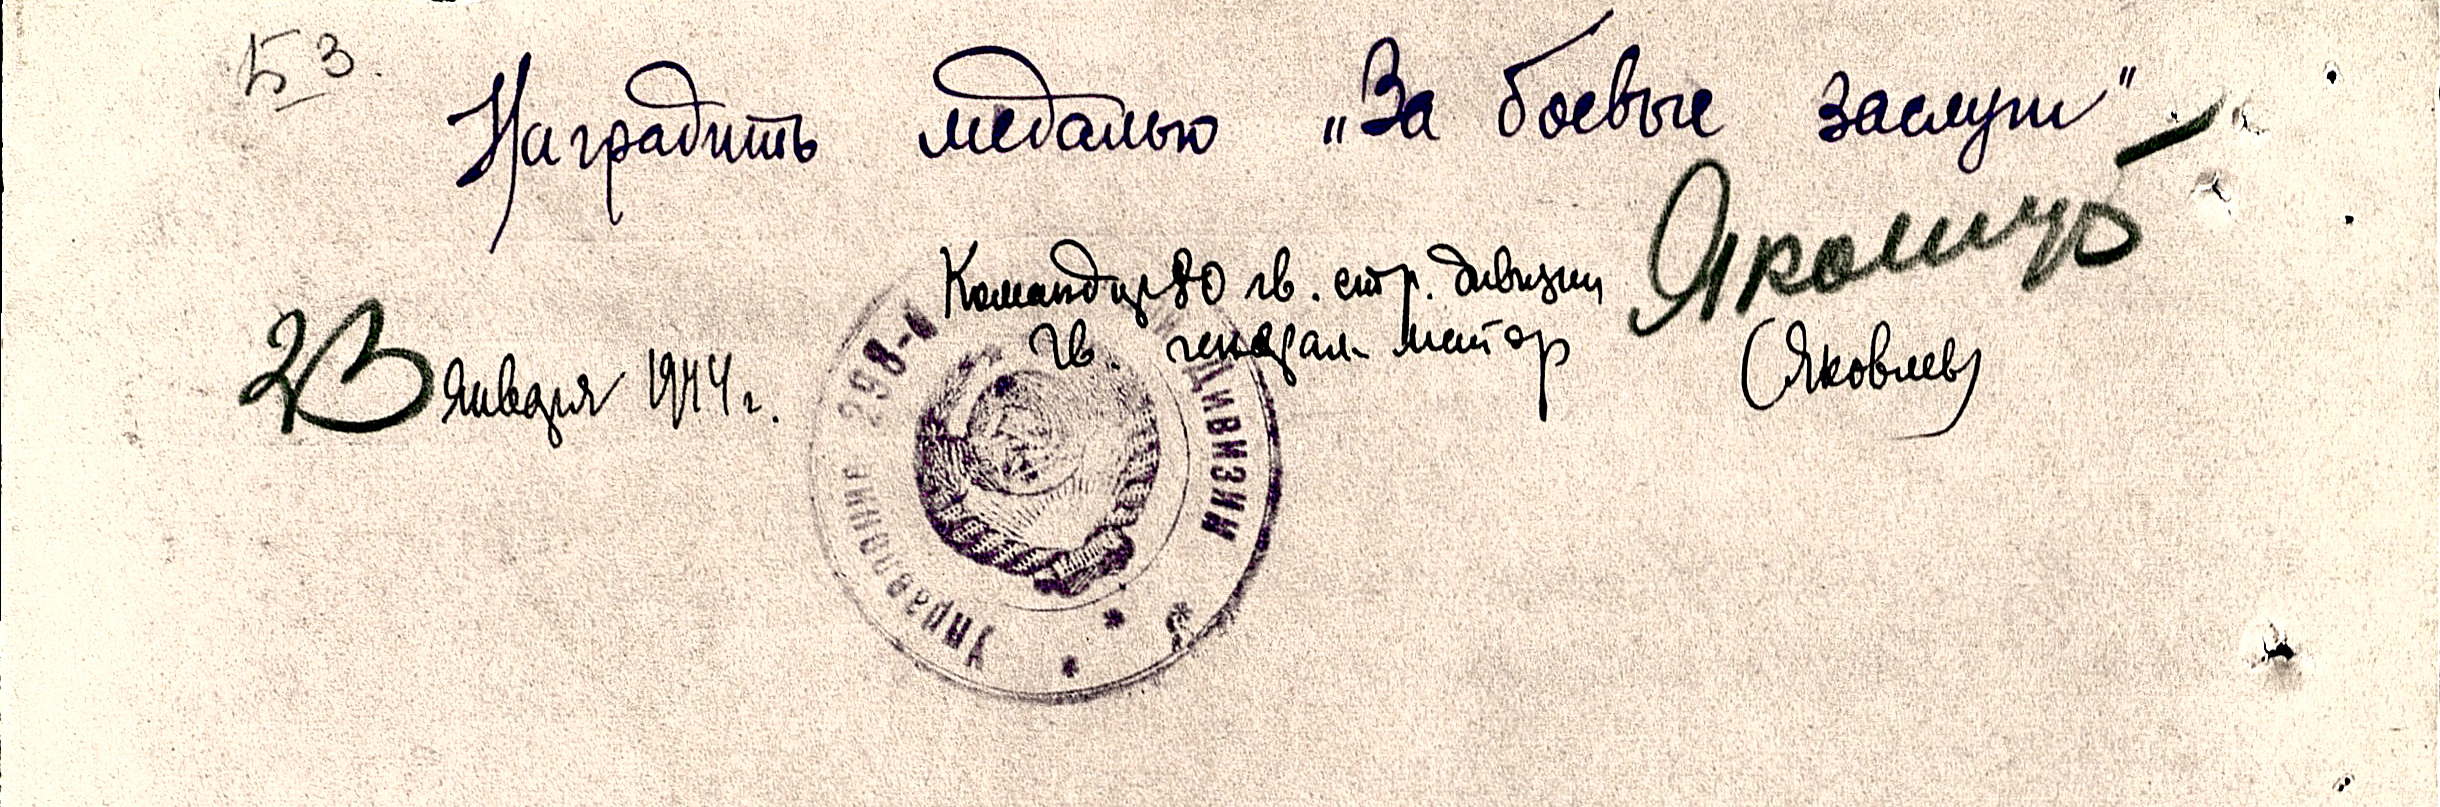 БЗ.
Наградить медалью „За боевые заслуги"
Командир 80 гв. стр. дивизии
Гв. генерал-майор (Яковлев)
23 Января 1944 г.
Управление 298-й дивизии